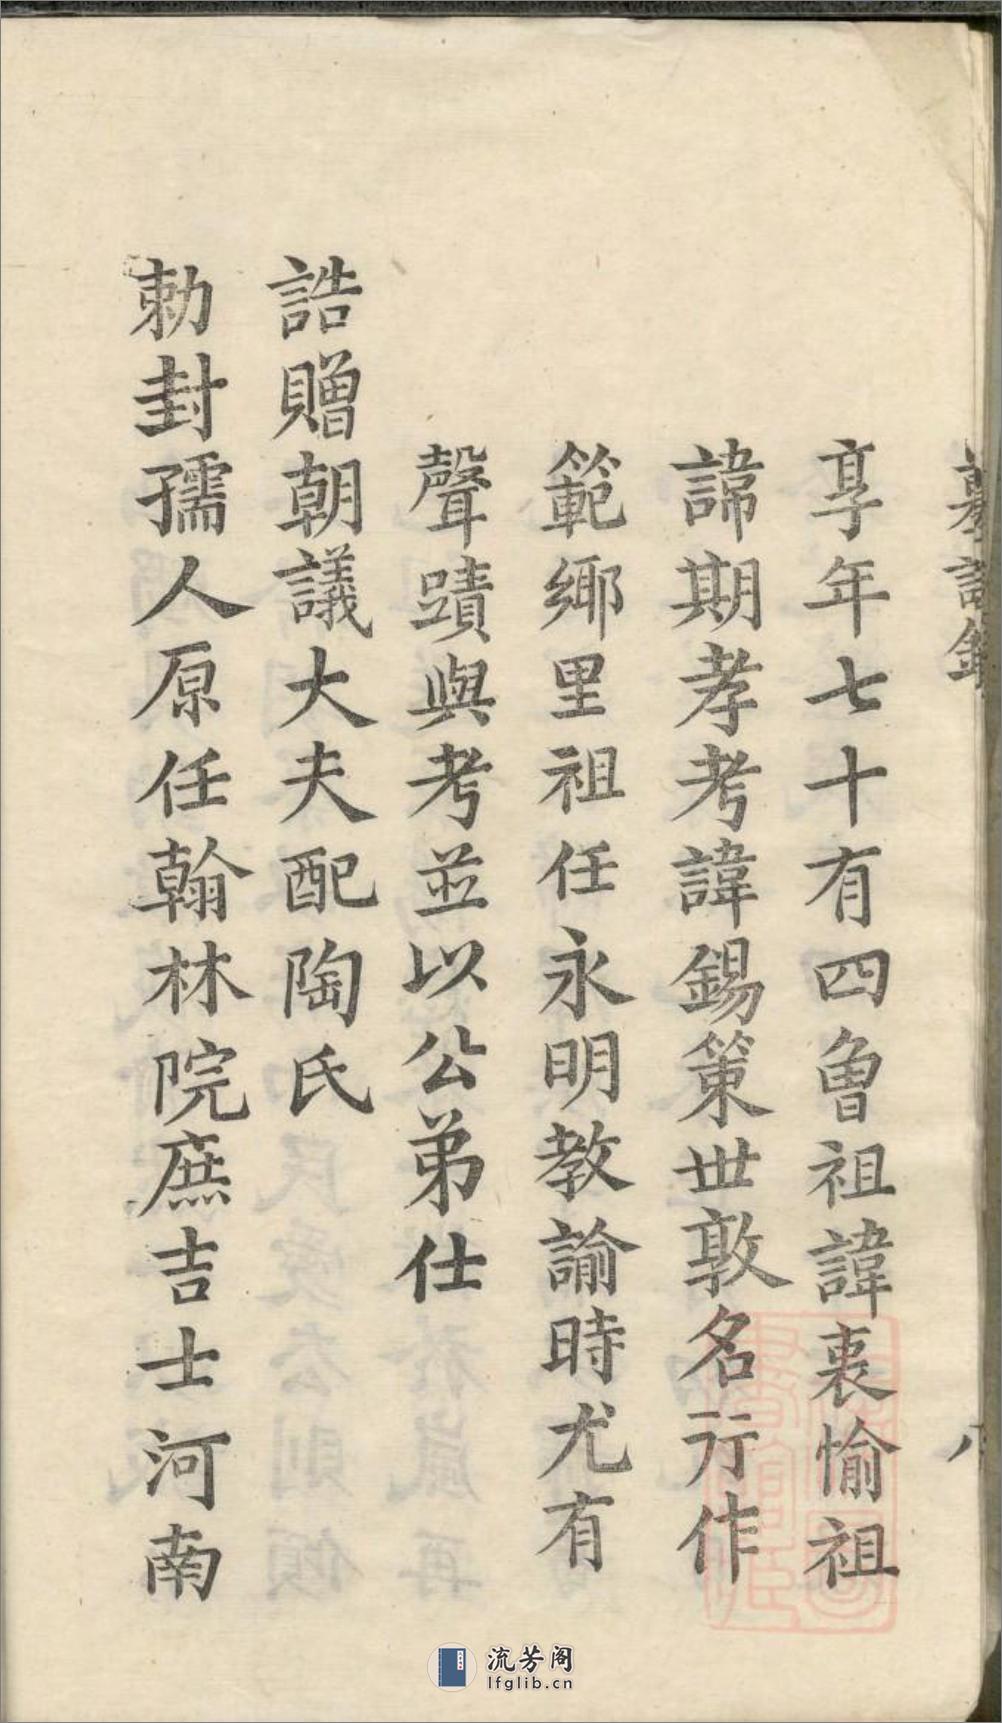 享年七十有四曾祖諱裏愉祖
諱期孝考諱錫策世敦名行作
範鄉里祖任永明教諭時尤有
聲蹟與考並以公弟仕
誥贈朝議大夫配陶氏
勅封孺人原任翰林院庶吉士河南
流芳阁
lfglib.cn